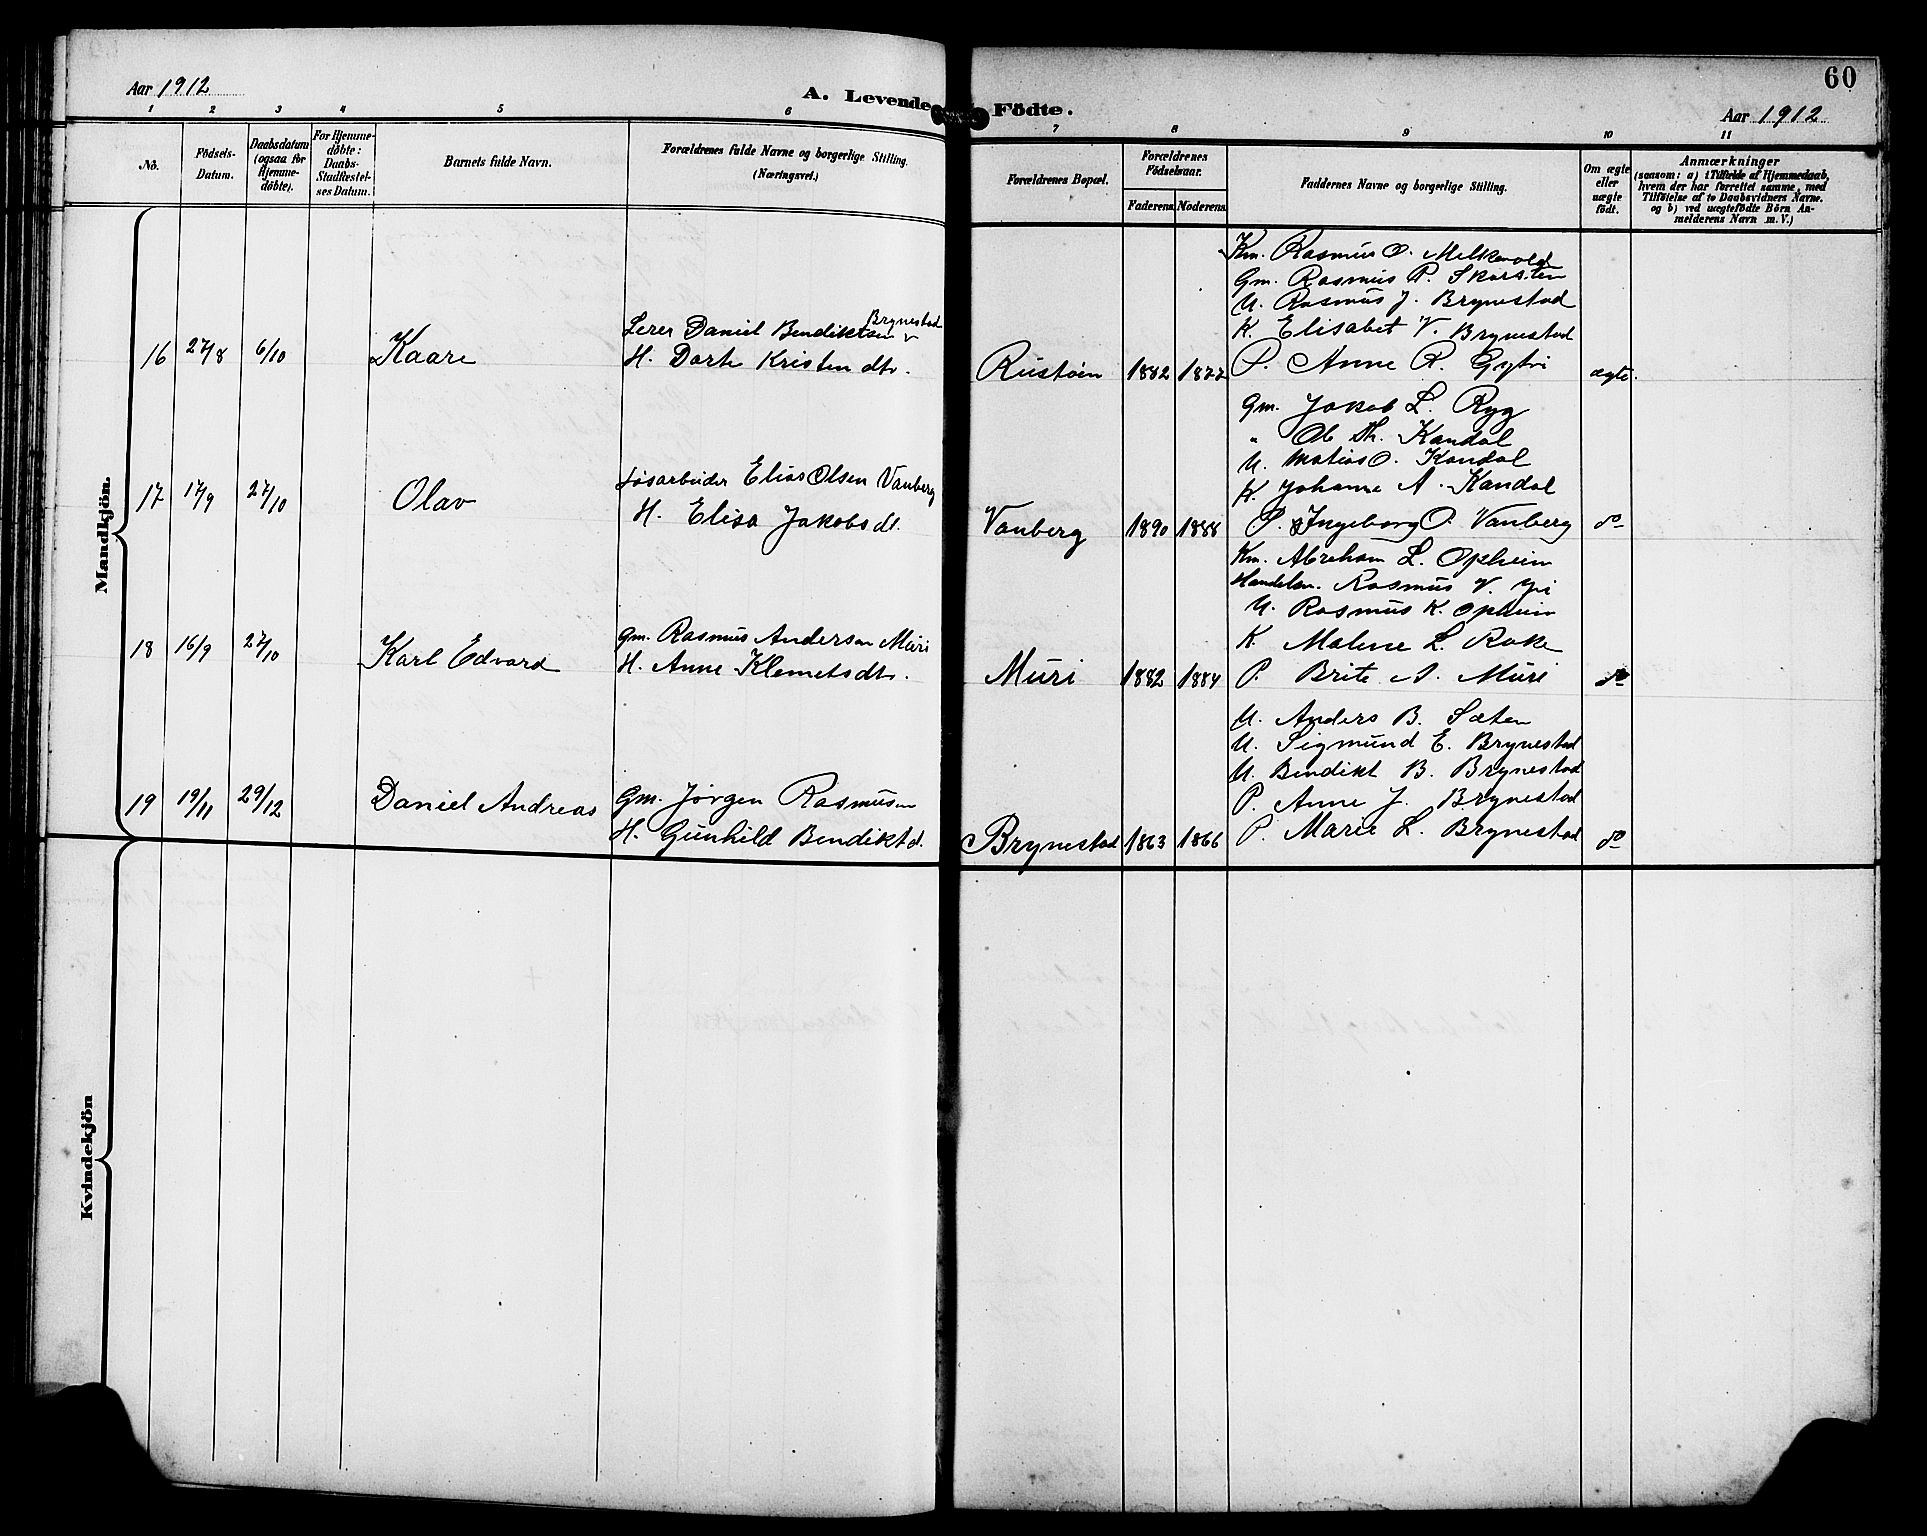 60
Aar 1912
A. Levende Födte.
Aar 1912
1 2 3 4 5 6 7 8 9 10 11
No.
Födsels-
Datum.
Daabsdatum
(ogsaa for
Hjemme-
döbte).
For Hjemme-
döbte:
Daabs-
Stadfæstel-
ses Datum.
Barnets fulde Navn.
Forældrenes fulde Navne og borgerlige Stilling.
(Næringsvei.)
Forældrenes Bopæl.
Forældrenes
Födselsaar.
Faderens Moderens
Faddernes Navne og borgerlige Stilling.
Om ægte
eller
uægte
födt.
Anmærkninger
(saasom: a) i Tilfælde af Hjemmedaab,
hvem der har forrettet samme, med
Tilföielse af to Daabsvidners Navne.
og b) ved uægtefödte Börn An-
melderens Navn m. V.)
Mandkjön.
Km. Rasmus O. Melkevold
Gm. Rasmus P. Skarsten
U. Rasmus J. Brynestad
K. Elisabet V. Brynestad
P. Anne R. Gytri
16 27/8 6/10 Kaare
Lærer Daniel Bendiktsen Brynestad
H. Dorte Kristendtr.
Rustöen 1882 1877 ægte.
Gm. Jakob L. Ryg
" Ole Th. Kandal
U. Matias O. Kandal
K. Johanne A. Kandal
P. Ingeborg O. Vanberg
17 17/9 27/10 Olav
Løsarbeider Elias Olsen Vanberg
H. Elisa Jakobsdt.
Vanberg 1890 1888 do
Km. Abraham L. Opheim
Handelsm. Rasmus V. Yri
U. Rasmus K. Opheim
K. Malene L. Rake
P. Brite A. Muri
18 16/9 27/10 Karl Edvard
Gm. Rasmus Andersen Muri
H. Anne Klemetsdtr.
Muri 1882 1884 do
U. Anders B. Sæten
U. Sigmund E. Brynestad
U. Bendikt B. Brynestad
P. Anne J. Brynestad
P. Marie L. Brynestad
19 19/11 29/12 Daniel Andreas
Gm. Jørgen Rasmusen
H. Gunhild Bendiktd.
Brynestad 1863 1866 do
Kvindekjön